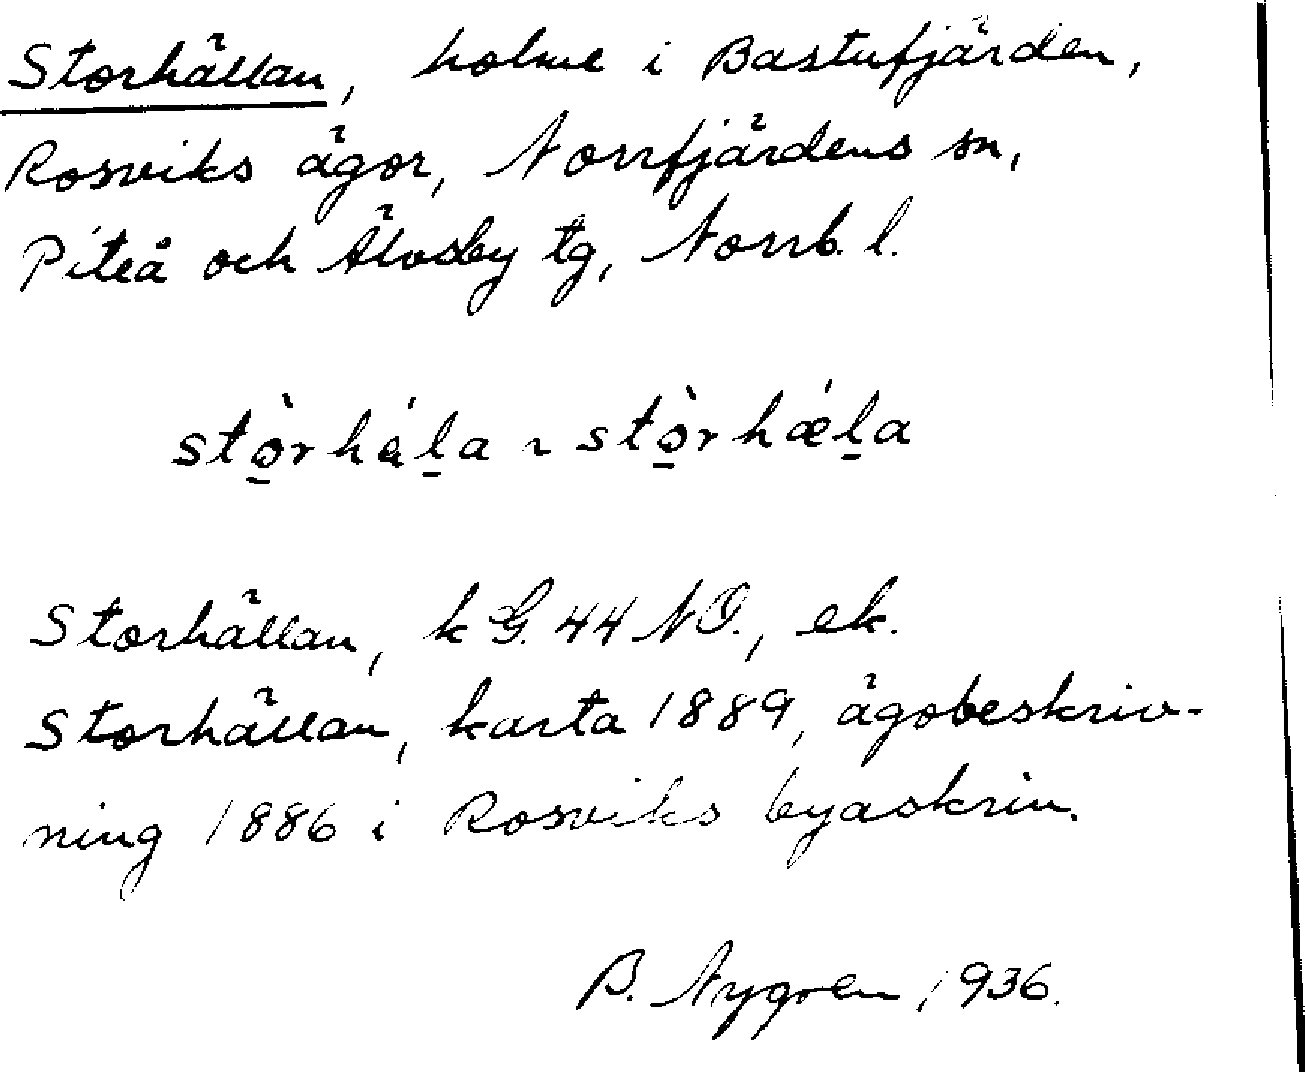 Storhällan, holme i Bastufjärden,
Rosviks ägor, Norrfjärdens sn,
Piteå och Älvsby tg, Norrb. l.
stò̠rhá̤l̠a ~ stò̠rhǽl̠a
Storhällan, k G. 44 NO., ek.
Storhällan, karta 1889, ägobeskriv-
ning 1886 i Rosviks byaskrin.
B. Nygren 1936.